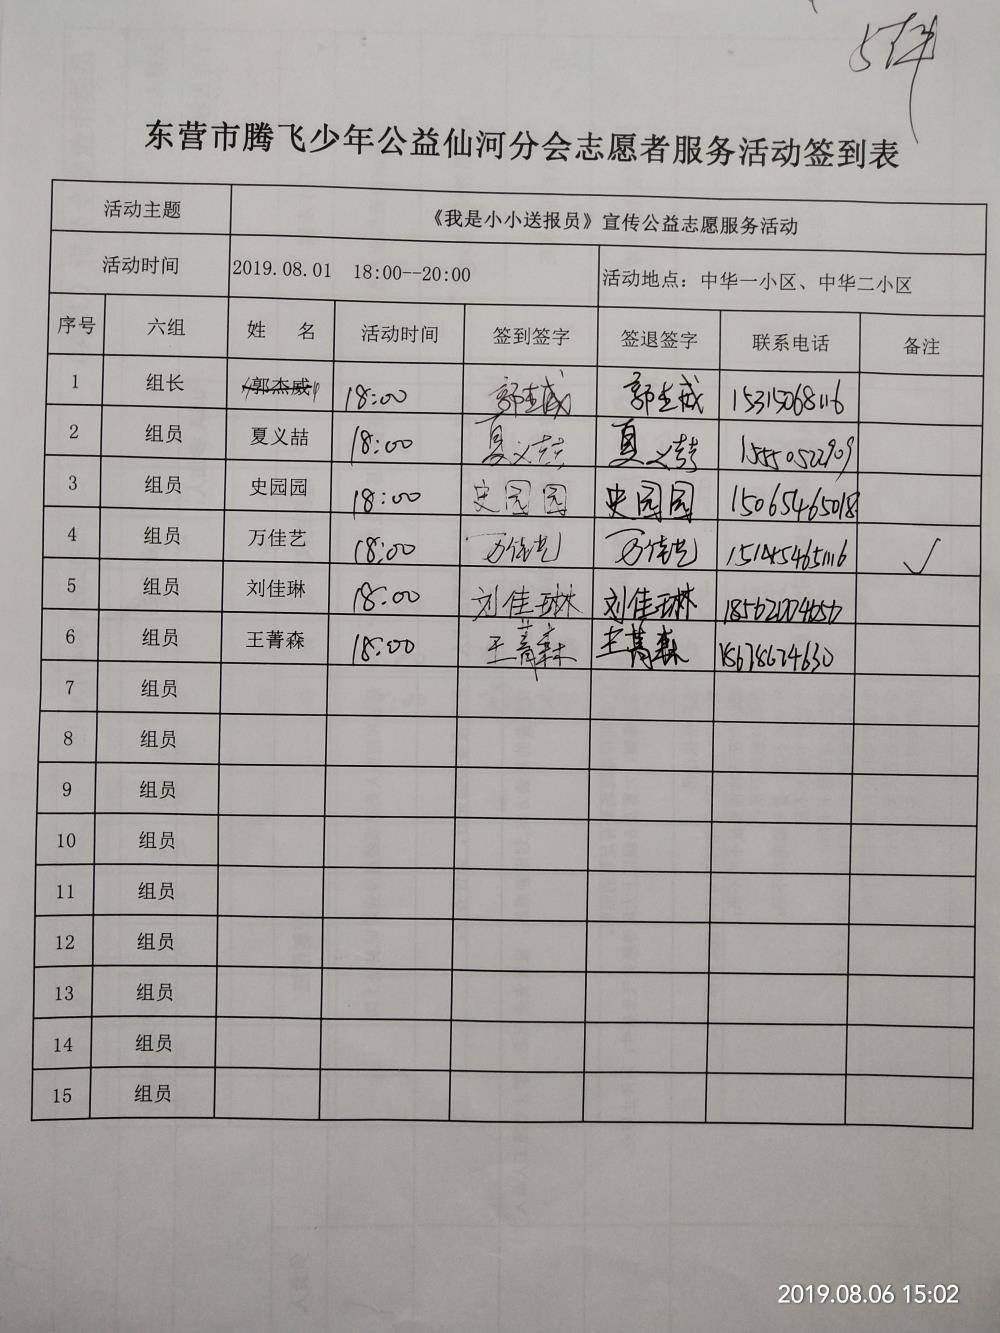 东营市腾飞少年公益仙河分会志愿者服务活动签到表
活动主题 《我是小小送报员》宣传公益志愿服务活动
活动时间 2019.08.01 18:00--20:00 活动地点：中华一小区、中华二小区
序号 六组 姓 名 活动时间 签到签字 签退签字 联系电话 备注
1 组长 郭杰威 18:00 15315068116
2 组员 夏义喆 18:00 夏义喆 夏义喆 15550522909
3 组员 史园园 18:00 史园园 史园园 15065465018
4 组员 万佳艺 18:00 万佳艺 万佳艺 ✓
5 组员 刘佳琳 18:00 刘佳琳 刘佳琳
6 组员 王菁森 18:00 王菁森 王菁森
7 组员
8 组员
9 组员
10 组员
11 组员
12 组员
13 组员
14 组员
15 组员
2019.08.06 15:02